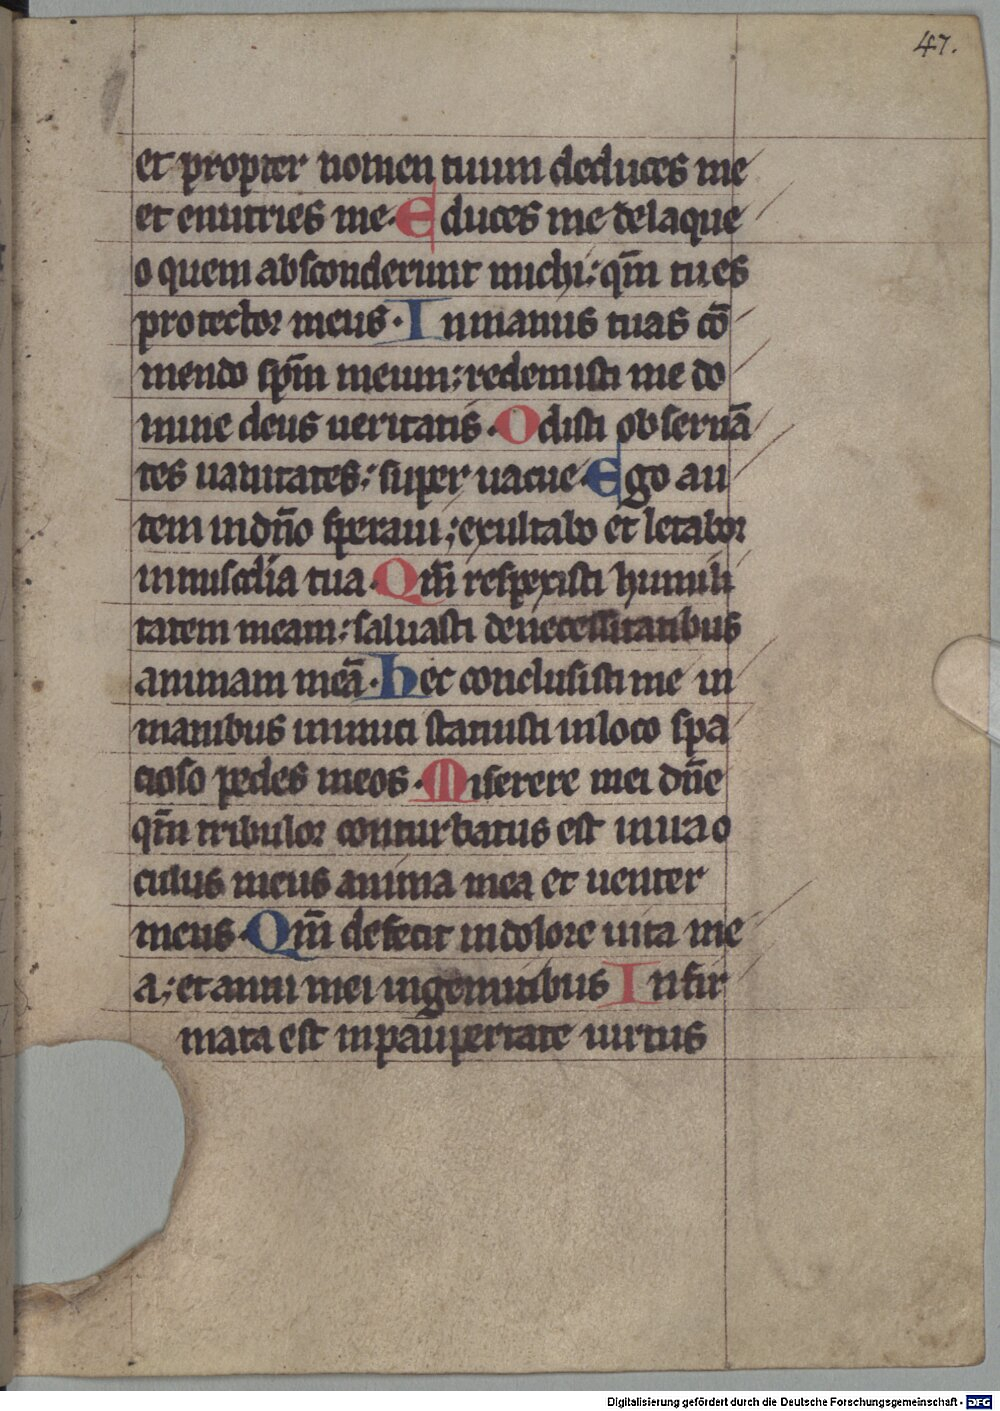 47.
et propter nomen tuum deduces me
et enutries me. Educes me de laque
o quem absconderunt michi: qm̄ tu es
protector meus. In manus tuas cō
mendo sp̄m meum: redemisti me do
mine deus ueritatis. Odisti obseruā
tes uanitates: super uacue Ego au
tem in dn̄o speraui; exultabo et letabor
in misc̄dia tua. Qm̄ respexisti humili
tatem meam: saluasti de necessitatibus
animam meā. hec conclusisti me in
manibus inimici statuisti in loco spa
cioso pedes meos. Miserere mei dn̄e
qm̄ tribulor conturbatus est in ira o
culus meus anima mea et uenter
meus. Qm̄ defecit in dolore uita me
a; et anni mei in gemitibus Infir
mata est in paupertate uirtus
Digitalisierung gefördert durch die Deutsche Forschungsgemeinschaft - DFG